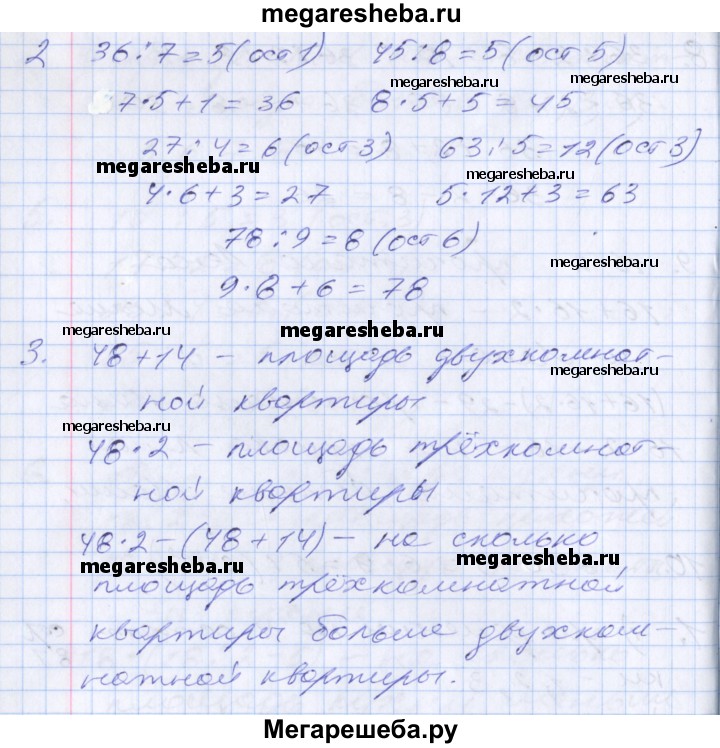 megaresheba.ru
2 36:7=5(ост1) 45:8=5(ост5)
megaresheba.ru megaresheba.ru
7·5+1=36 8·5+5=45
27:4=6(ост3) 63:5=12(ост3)
megaresheba.ru megaresheba.ru
4·6+3=27 5·12+3=63
78:9=8(ост6)
megaresheba.ru
9·8+6=78
megaresheba.ru megaresheba.ru
3. 48+14 – площадь двухкомнат-
megaresheba.ru
ной квартиры
megaresheba.ru
48·2 – площадь трёхкомнат-
ной квартиры
48·2-(48+14) – на сколько
megaresheba.ru megaresheba.ru
площадь трёхкомнатной
квартиры больше двухком-
натной квартиры.
Мегарешеба.ру